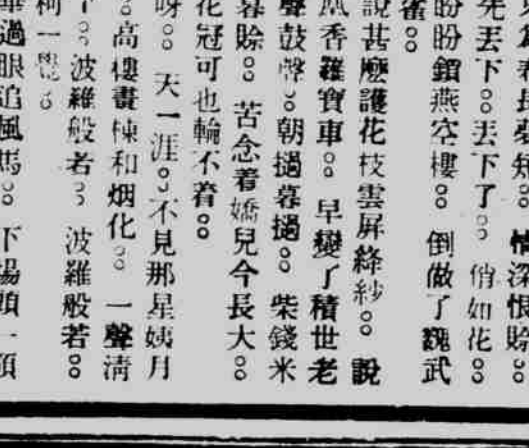 春長夢短。。情深恨賒。。
先丟下。。丟下了。。俏如花。。
盼盼鎖燕空樓。。倒做了魏武
雀。。
說甚麼護花枝雲屏絳紗。。說
鳳香羅寶車。。早變了積世老
聲鼓聲。。朝撾暮撾。。柴錢米
暮賒。。苦念着嬌兒今長大。。
花冠可也輪不着。。
呀。。天一涯。。不見那星姨月
。。高樓畫棟和烟化。。一聲清
下。。波羅般若。。波羅般若。。
柯一覺。。
華過眼追風馬。。下場頭一項